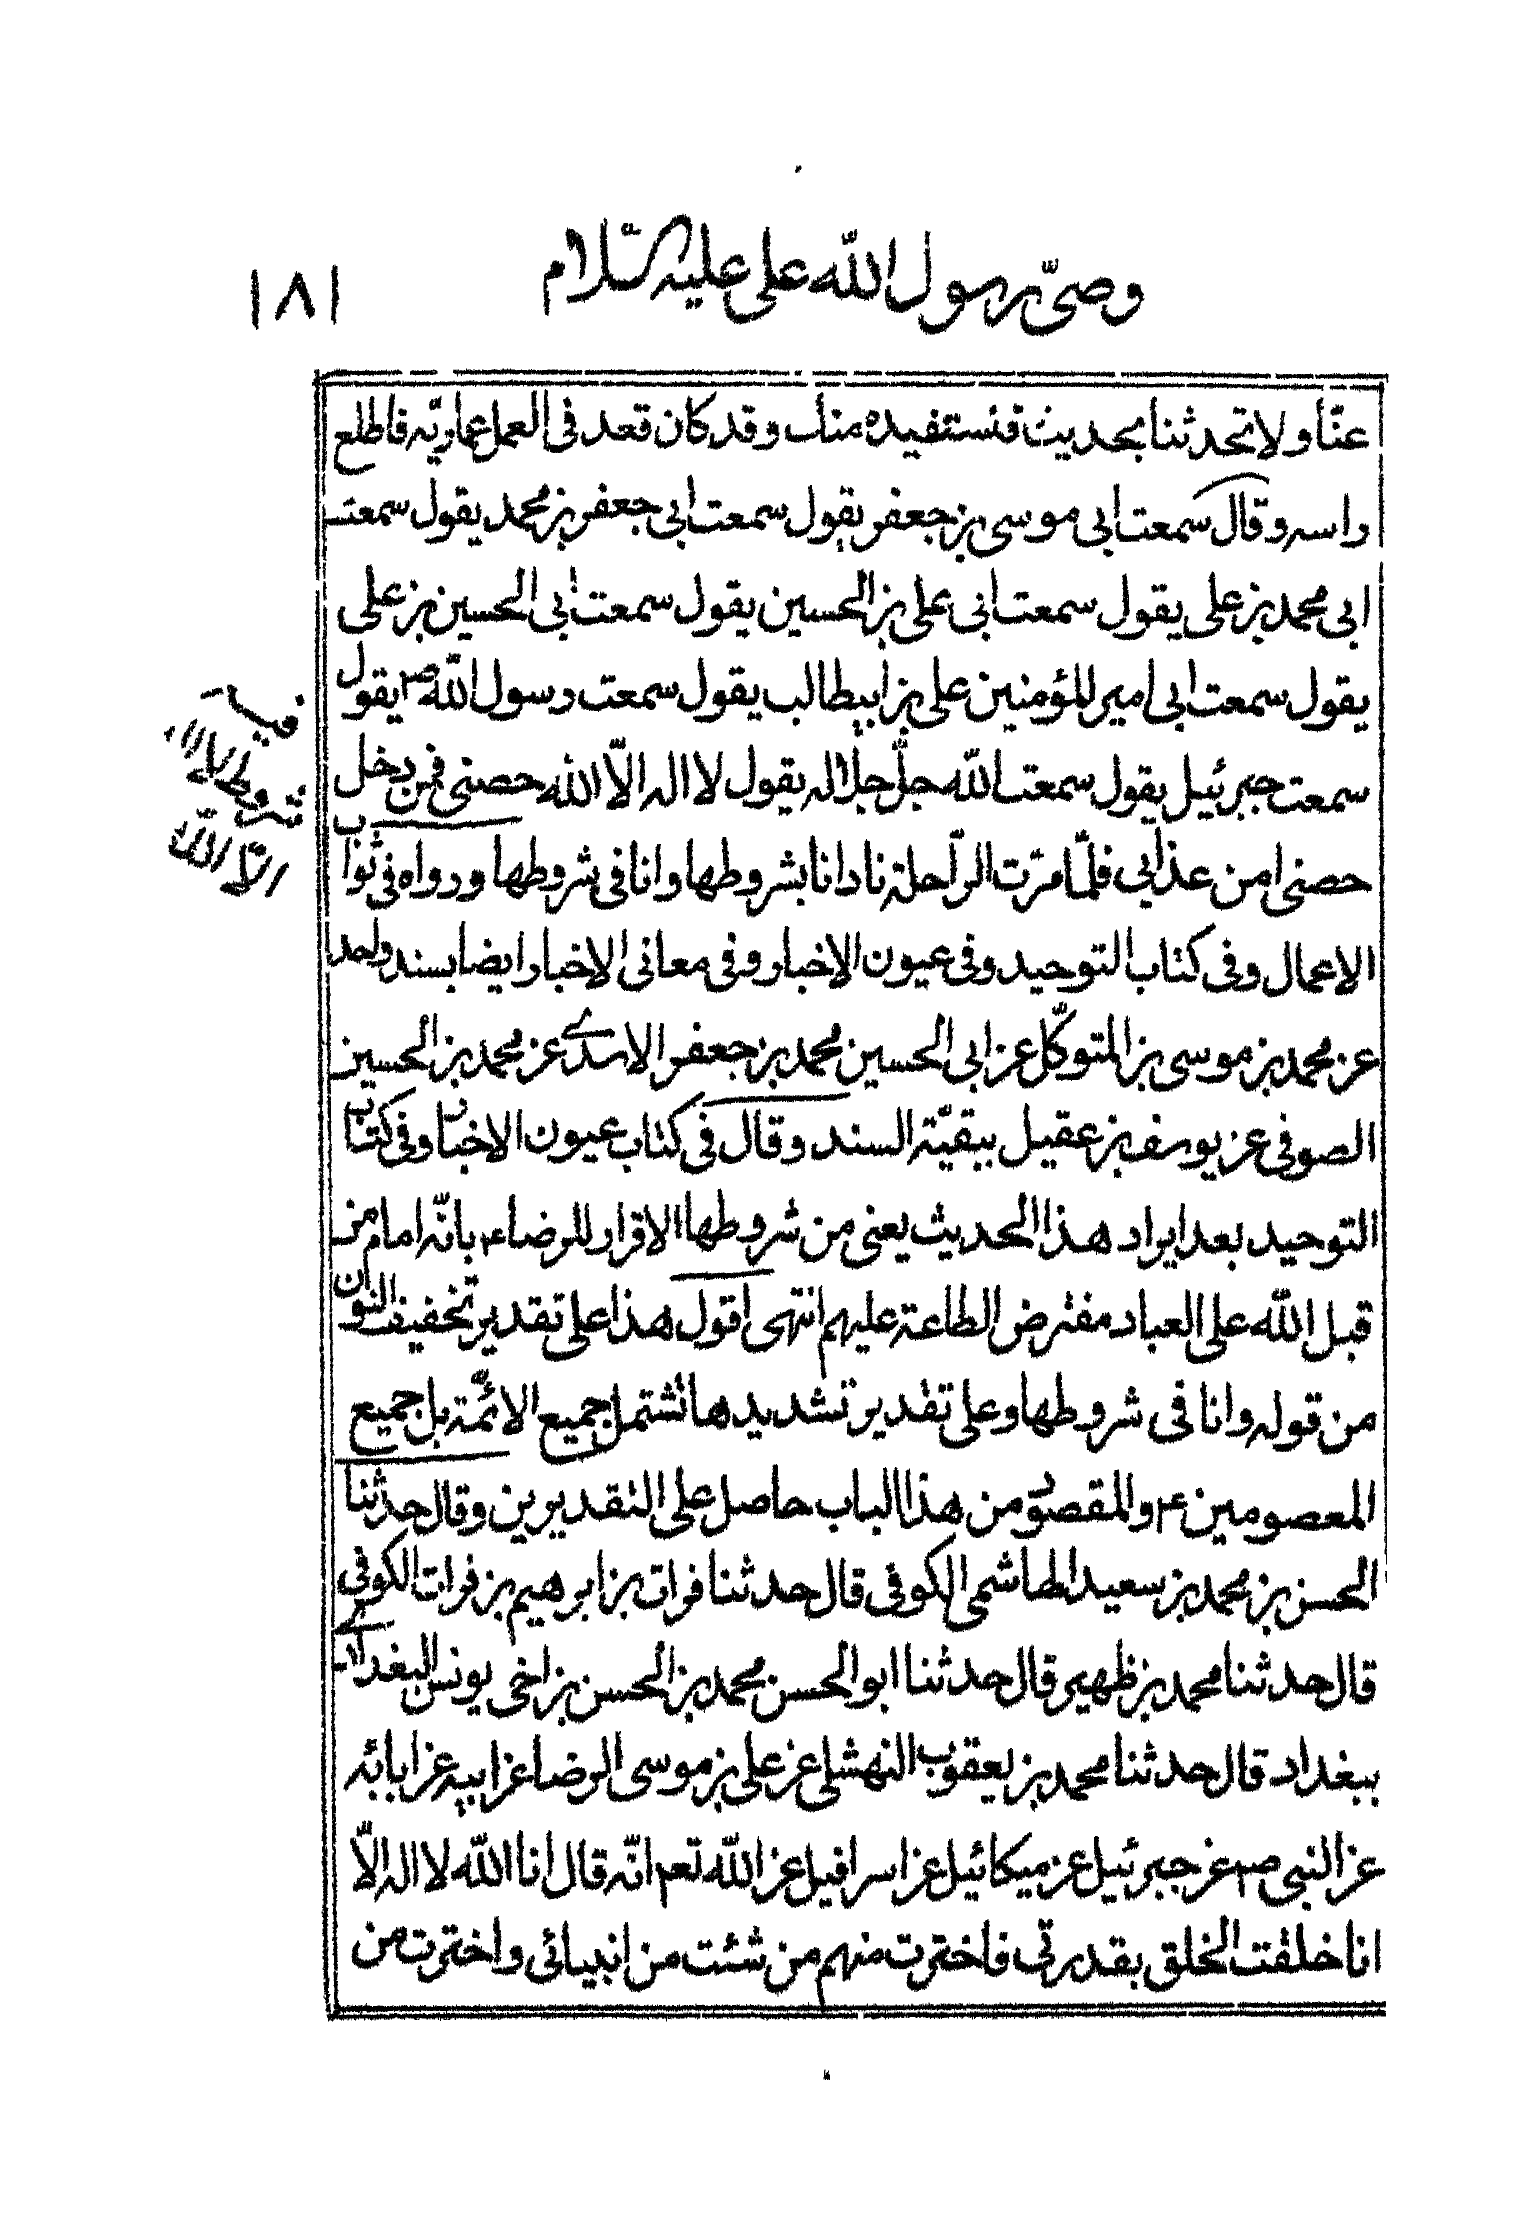 وصىّ رسول اللّه على عليه السّلام
١٨١
عنّا ولا تحدثنا بحديث فنستفيده منك وقد كان قعد فى العماريّه فاطلع
راسه وقال سمعت ابى موسى بن جعفر يقول سمعت ابى جعفر بن محمد يقول سمعت
ابى محمد بن على يقول سمعت ابى على بن الحسين يقول سمعت ابى الحسين بن على
يقول سمعت ابى امير المؤمنين على بن ابيطالب يقول سمعت رسول اللّه ص يقول
سمعت جبرئيل يقول سمعت اللّه جلّ جلاله يقول لا اله الّا اللّه حصنى فمن دخل
حصنى امن عذابى فلمّا مرّت الراحلة نادانا بشروطها وانا فى شروطها ورواه فى ثواب
الاعمال وفى كتاب التوحيد وفى عيون الاخبار وفى معانى الاخبار ايضا بسند واحد
عن محمد بن موسى بن المتوكّل عن ابى الحسين محمد بن جعفر الاسدى عن محمد بن الحسين
الصوفى عن يوسف بن عقيل ببقيّة السند وقال فى كتاب عيون الاخبار وفى كتاب
التوحيد بعد ايراد هذا الحديث يعنى من شروطها الاقرار للرضاء ع بانّه امام من
قبل اللّه على العباد مفترض الطاعة عليهم انتهى اقول هذا على تقدير تخفيف النون
من قوله وانا فى شروطها وعلى تقدير تشديدها تشتمل جميع الائمّة بل جميع
المعصومين ع والمقصود من هذا الباب حاصل على التقديرين وقال حدثنا
الحسن بن محمد بن سعيد الهاشمى الكوفى قال حدثنا فرات بن ابرهيم بن فرات الكوفى
قال حدثنا محمد بن ظهير قال حدثنا ابو الحسن محمد بن الحسن بن اخى يونس البغدادى
ببغداد قال حدثنا محمد بن يعقوب النهشلى عن على بن موسى الرضاء عن ابيه عن ابائه
عن النبى ص عن جبرئيل عن ميكائيل عن اسرافيل عن اللّه تعم انّه قال انا اللّه لا اله الّا
انا خلقت الخلق بقدرتى فاخترت منهم من شئت من انبيائى واخترت من
الّا اللّه